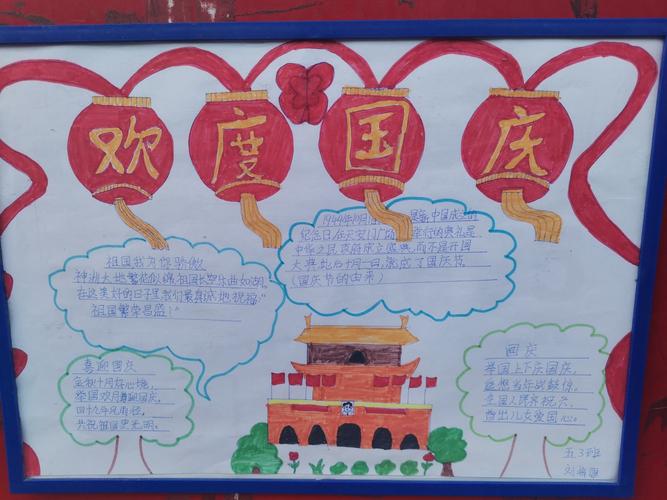 欢度国庆
祖国我为您骄傲
神洲大地繁花似锦祖国长空乐曲如潮
在这美好的日子里我们最真诚地祝福:"
祖国繁荣昌盛!"
1949年10月 是新中国成立的
纪念日,在天安门广场举行的典礼是
中华人民政府成立盛典,而不是开国
大典,此后十月一日,就成了国庆节。
(国庆节的由来)
喜迎国庆
金秋十月好心境,
举国欢腾迎国庆。
四十九年风雨径,
共祝祖国更光明。
国庆
举国上下庆国庆,
遥想当年战鼓惊。
全国人民齐祝六
五.3班